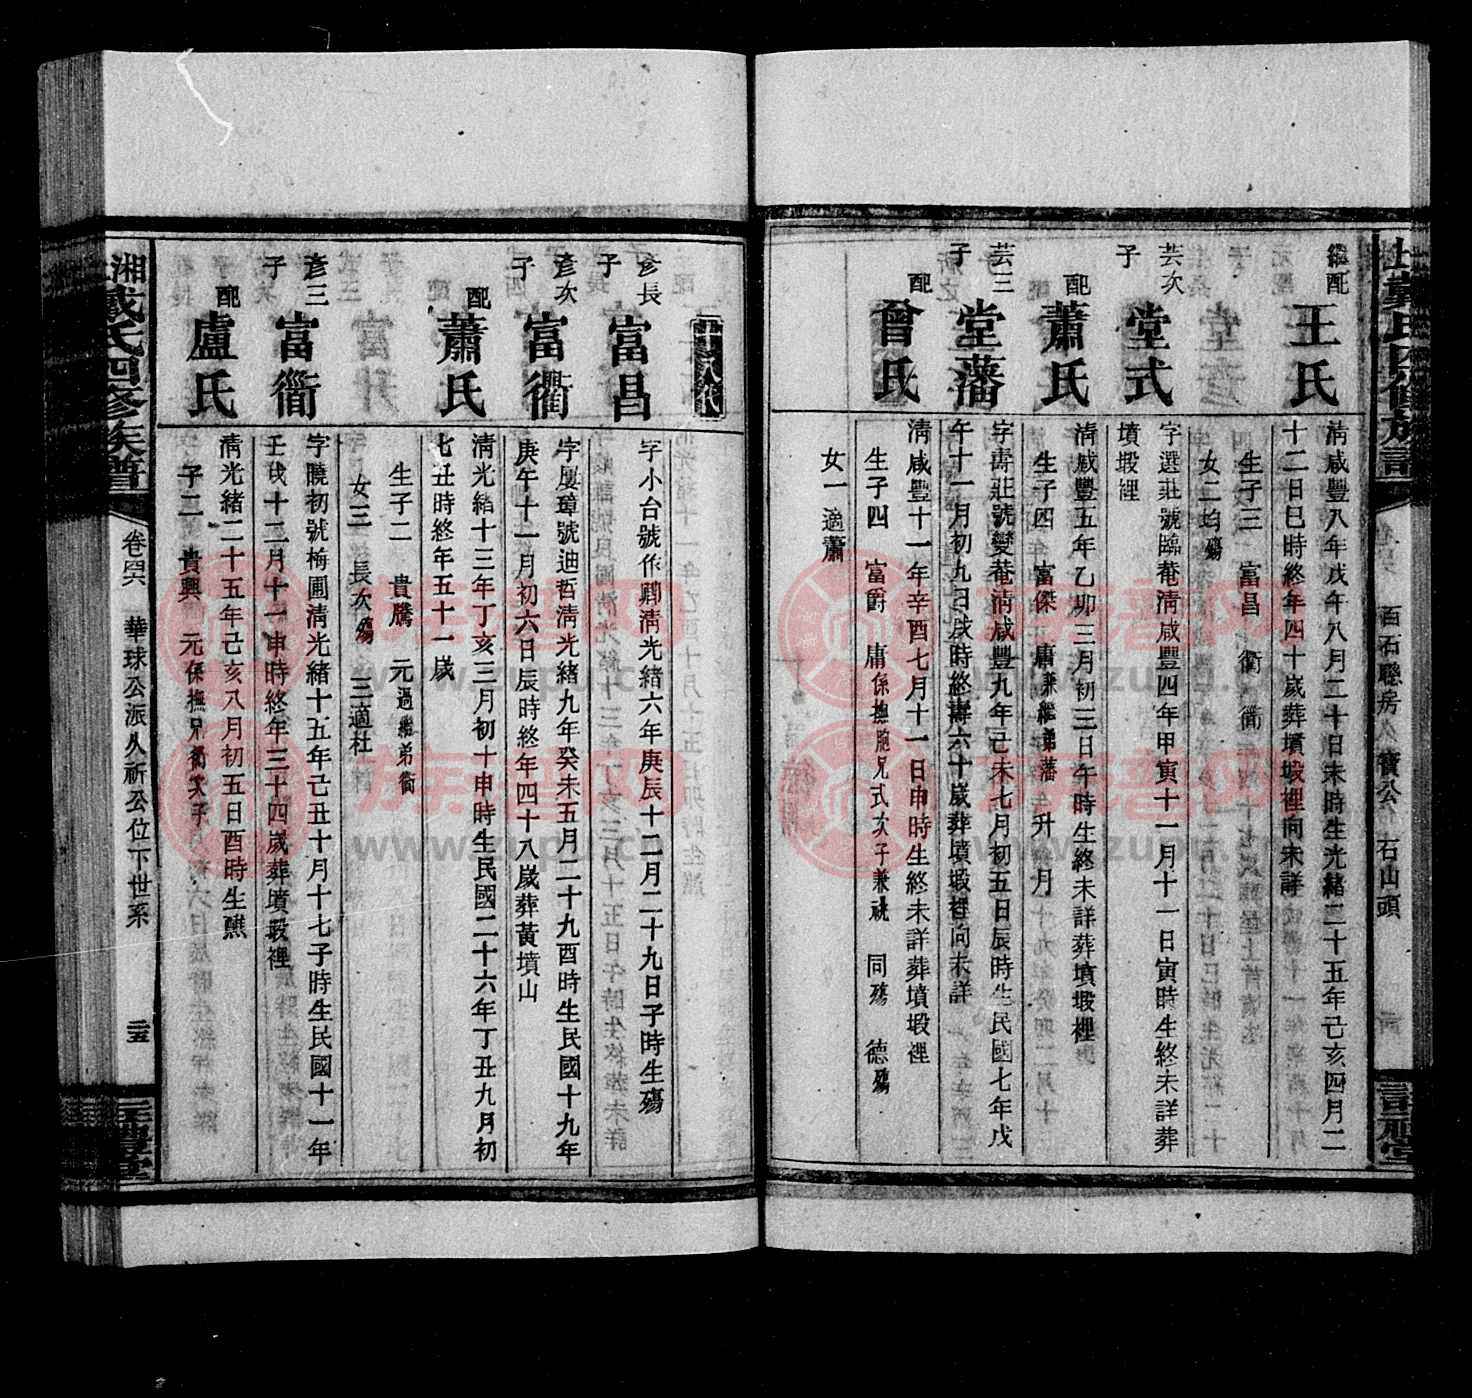 繼配
王氏
清咸豐八年戊午八月二十日未時生光緒二十五年己亥四月二
十二日巳時終年四十歲葬墳塅裡向未詳
生子三 富昌 衢 衢
女二均殤
芸次
子
堂式
字選莊號臨菴清咸豐四年甲寅十一月十一日寅時生終未詳葬
墳塅裡
配
蕭氏
清咸豐五年乙卯三月初三日午時生終未詳葬墳塅裡
生子四 富傑 庸兼繼弟藩 升 月
芸三
子
堂藩
字壽莊號變菴清咸豐九年己未七月初五日辰時生民國七年戊
午十一月初九日戌時終壽六十歲葬墳塅裡向未詳
配
曾氏
清咸豐十一年辛酉七月十一日申時生終未詳葬墳塅裡
生子四 富爵 庸係撫胞兄式次子兼祧 同殤 德殤
女一適蕭
百石聯房
石山頭
彥長
子
富昌
字小台號作卿清光緒六年庚辰十二月二十九日子時生殤
彥次
子
富衢
字慶璋號迪哲清光緒九年癸未五月二十九酉時生民國十九年
庚午十一月初六日辰時終年四十八歲葬黃墳山
配
蕭氏
清光緒十三年丁亥三月初十申時生民國二十六年丁丑九月初
七丑時終年五十一歲
生子二 貴騰 元過繼弟衢
女三 長次殤 三適杜
彥三
子
富衢
字曉初號梅圃清光緒十五年己丑十月十七子時生民國十一年
壬戌十二月十一申時終年三十四歲葬墳塅裡
配
盧氏
清光緒二十五年己亥八月初五日酉時生醮
子二 貴興 元係撫兄衢次子
湘戴氏四修族譜
卷四六
華球公派人祈公位下世系
二五
族譜网
www.zupu.cn